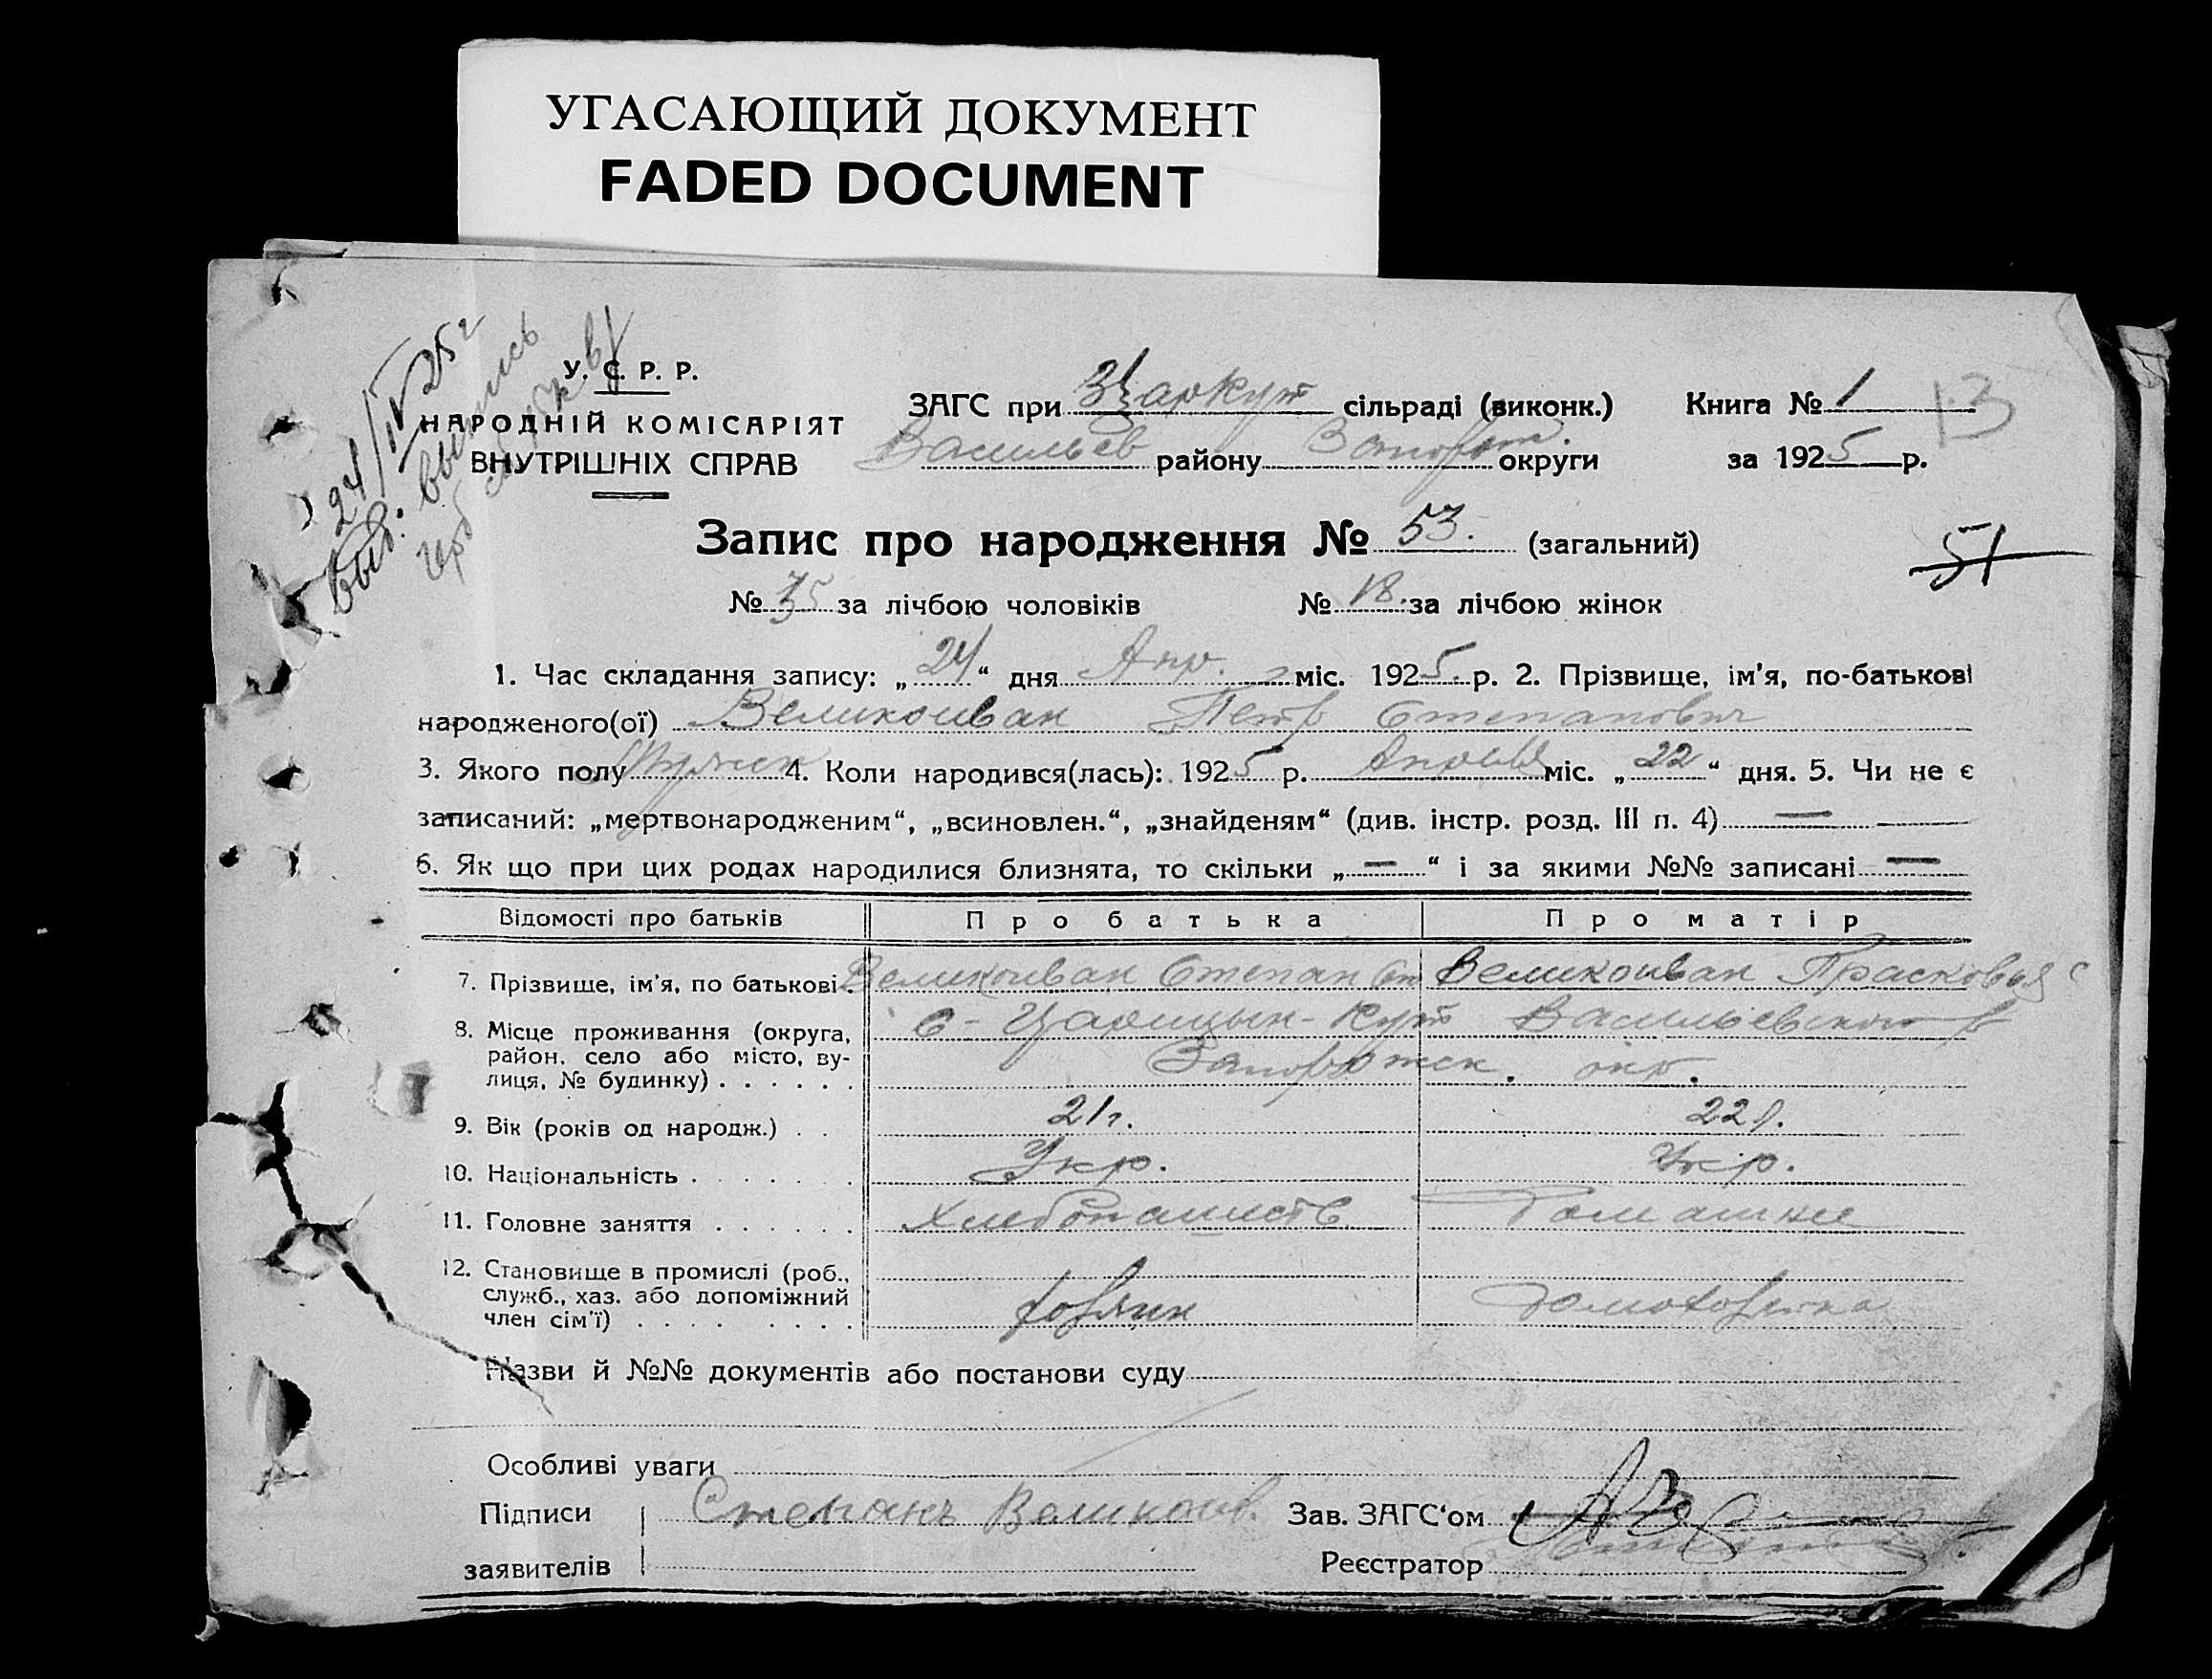 УГАСАЮЩИЙ ДОКУМЕНТ
FADED DOCUMENT
24/IV 25 г
Выд. выпись
У. С. Р. Р.
НАРОДНІЙ КОМІСАРІЯТ
ВНУТРІШНІХ СПРАВ
ЗАГС при Царкут сільраді (виконк.) Книга № 1 13
Васильев району Запорож. округи за 1925 р.
Запис про народження № 53. (загальний)
51
№ 35 за лічбою чоловіків № 18. за лічбою жінок
1. Час складання запису: „24“ дня Апр. міс. 1925. р. 2. Прізвище, ім'я, по-батькові
народженого(ої) Великоиван Петр Степанович
3. Якого полу Мужск 4. Коли народився(лась): 1925 р. Апреля міс. „22“ дня. 5. Чи не є
записаний: „мертвонародженим“, „всиновлен.“, „знайденям“ (див. інстр. розд. III п. 4) —
6. Як що при цих родах народилися близнята, то скільки „—“ і за якими №№ записані —
Відомості про батьків Про батька Про матір
7. Прізвище, ім'я, по батькові. Великоиван Степан Ст Великоиван Прасковья С
8. Місце проживання (округа, С- Царицын-Кут Васильевского р
район, село або місто, ву- Запорожск. окр.
лиця, № будинку) . . . . . .
9. Вік (років од народж.) . . 21 г. 22 г.
10. Національність . . . . . . . Укр. Укр.
11. Головне заняття . . . . . . Хлебопашеств Домашнее
12. Становище в промислі (роб.,
служб., хаз. або допоміжний
член сім'ї) . . . . . . . . хозяин домохозяйка
Назви й №№ документів або постанови суду
Особливі уваги
Підписи Степанъ Великоив. Зав. ЗАГС'ом
заявителів Реєстратор